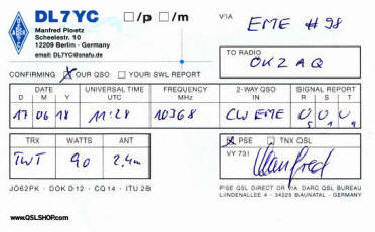 DL7YC /p /m
VIA EME #98
Manfred Ploetz
Scheelestr. 90
12209 Berlin - Germany
email: DL7YC@snafu.de
TO RADIO
OK2AQ
CONFIRMING X OUR QSO YOUR SWL REPORT
DATE UNIVERSAL TIME FREQUENCY 2-WAY QSO SIGNAL REPORT
D M Y UTC MHz IN R S T
17 06 18 11:28 10368 CW EME
TRX WATTS ANT
X PSE TNX QSL
TWT 90 2.4m
VY 73! Manfred
JO62PK - DOK D-12 - CQ 14 - ITU 28
PSE QSL DIRECT OR VIA DARC QSL BUREAU
LINDENALLEE 4 - 34225 BAUNATAL - GERMANY
www.QSLSHOP.com